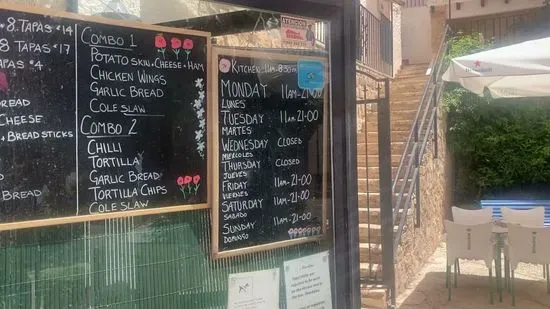 * 8. TAPAS *14
8 TAPAS *17
TAPAS *4
CHEESE
+ BREAD STICKS
BREAD
COMBO 1
POTATO SKIN + CHEESE + HAM
CHICKEN WINGS
GARLIC BREAD
COLE SLAW
COMBO 2
CHILLI
TORTILLA
GARLIC BREAD
TORTILLA CHIPS
COLE SLAW
ATENCION
KITCHEN 11AM - 8:30PM
MONDAY 11AM-21·00
LUNES
TUESDAY 11AM-21·00
MARTES
WEDNESDAY CLOSED
MIERCOLES
THURSDAY CLOSED
JUEVES
FRIDAY 11AM-21·00
VIERNES
SATURDAY 11AM-21·00
SABADO
SUNDAY 11AM-21·00
DOMINGO